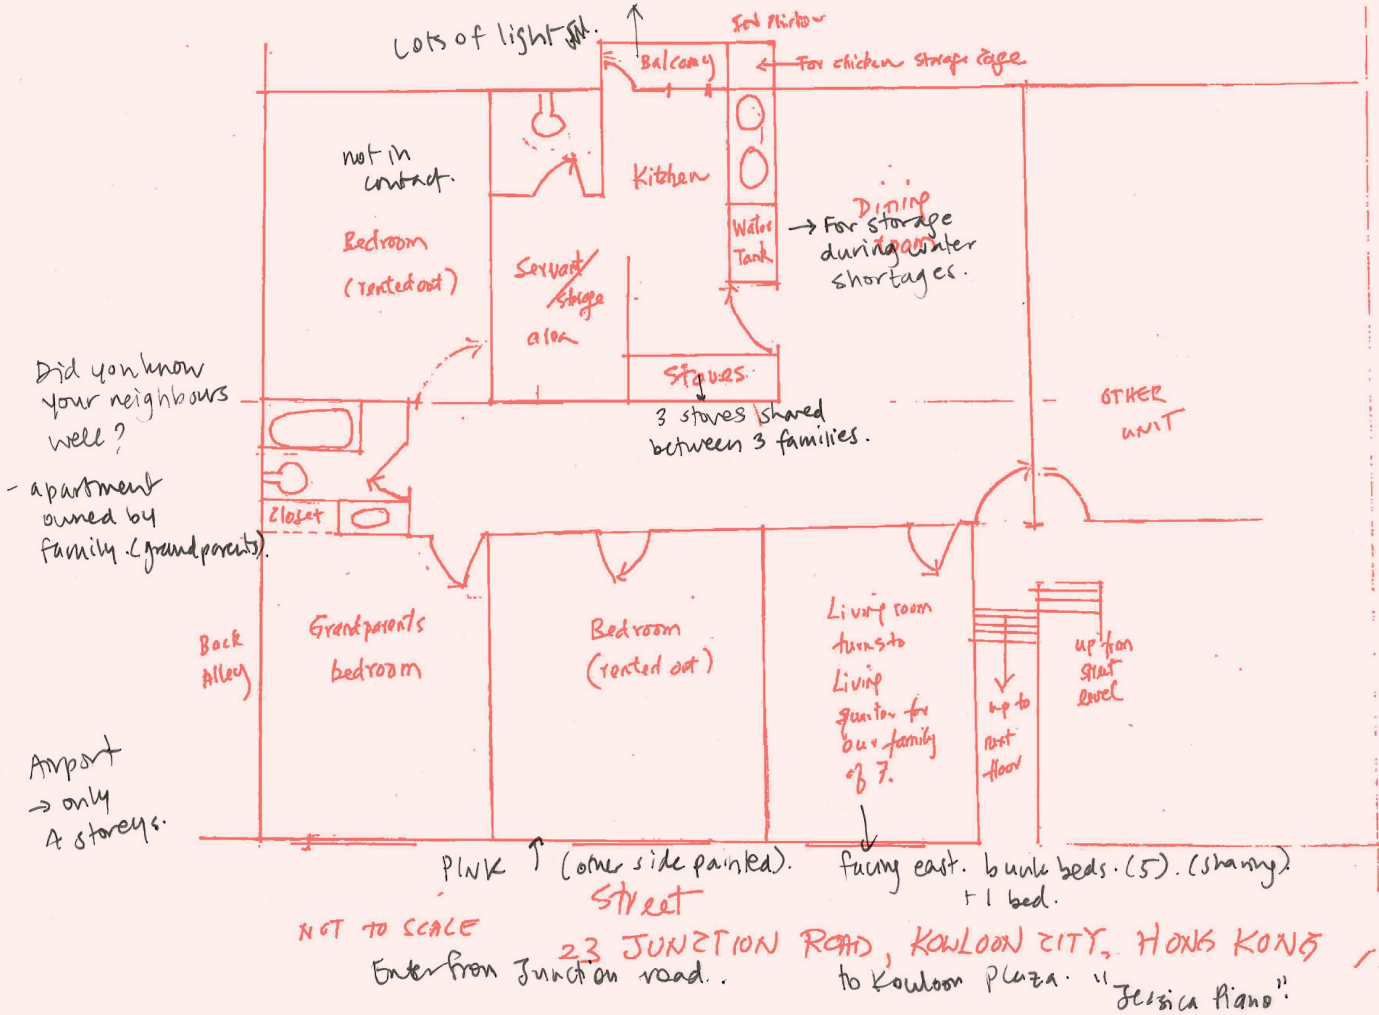 Lots of light
Balcony
← For chicken storage cage
not in
contact.
Kitchen
Dining
room
Water
Tank
→ For storage
during water
shortages.
Bedroom
(rented out)
Servant/
storage
area
Stoves
3 stoves shared
between 3 families.
OTHER
UNIT
Did you know
your neighbours
well?
- apartment
owned by
family. (grandparents).
Closet
Back
Alley
Grandparents
bedroom
Bedroom
(rented out)
Living room
turns to
Living
quarter for
our family
of 7.
up to
next
floor
up from
street
level
Airport
→ only
4 storeys.
PINK ↑ (other side painted).
facing east. bunk beds. (5). (sharing).
+ 1 bed.
Street
NOT TO SCALE
23 JUNCTION ROAD, KOWLOON CITY, HONG KONG
Enter from Junction road.
to Kowloon Plaza. "Jessica Piano".